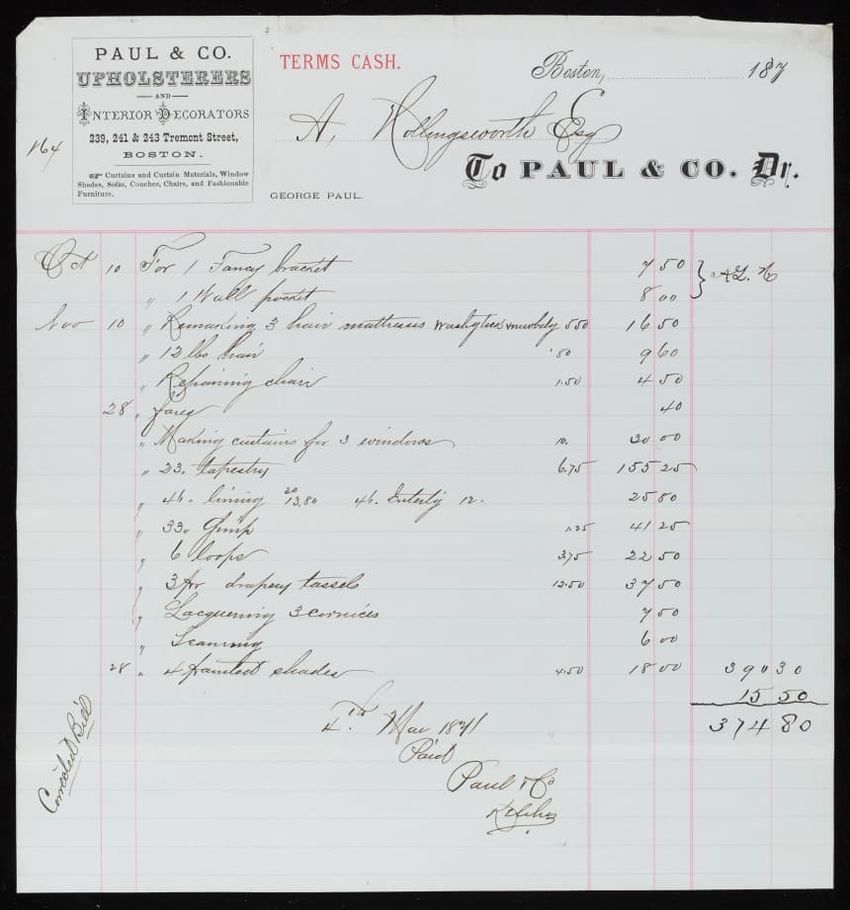 PAUL & CO.
UPHOLSTERERS
AND
INTERIOR DECORATORS
239, 241 & 243 Tremont Street,
BOSTON.
☞ Curtains and Curtain Materials, Window
Shades, Sofas, Couches, Chairs, and Fashionable
Furniture.
TERMS CASH.
Boston, 187
164
A, Hollingsworth Esq
To PAUL & CO. Dr.
GEORGE PAUL.
Oct 10 For 1 Fancy bracket 7 50
" 1 Wall pocket 8 00
Nov 10 " Remaking 3 hair mattresses 5 50 16 50
" 12 lbs hair 80 9 60
" Repairing chair 1.50 4 50
28 " fares 40
" Making curtains for 3 windows 10. 30 00
" 23. tapestry 6.75 155 25
" 46. lining 20 13.80 46. 12. 25 80
" 33. Gimp 1.25 41 25
" 6 loops 3.75 22 50
" 3 pr drapery tassels 12.50 37 50
" Lacquering 3 cornices 7 50
" Seaming 6 00
28 " 4 painted shades 4.50 18 00 390 30
15 50
374 80
4th Mar 1871
Paid
Paul & Co
Corrected Bill